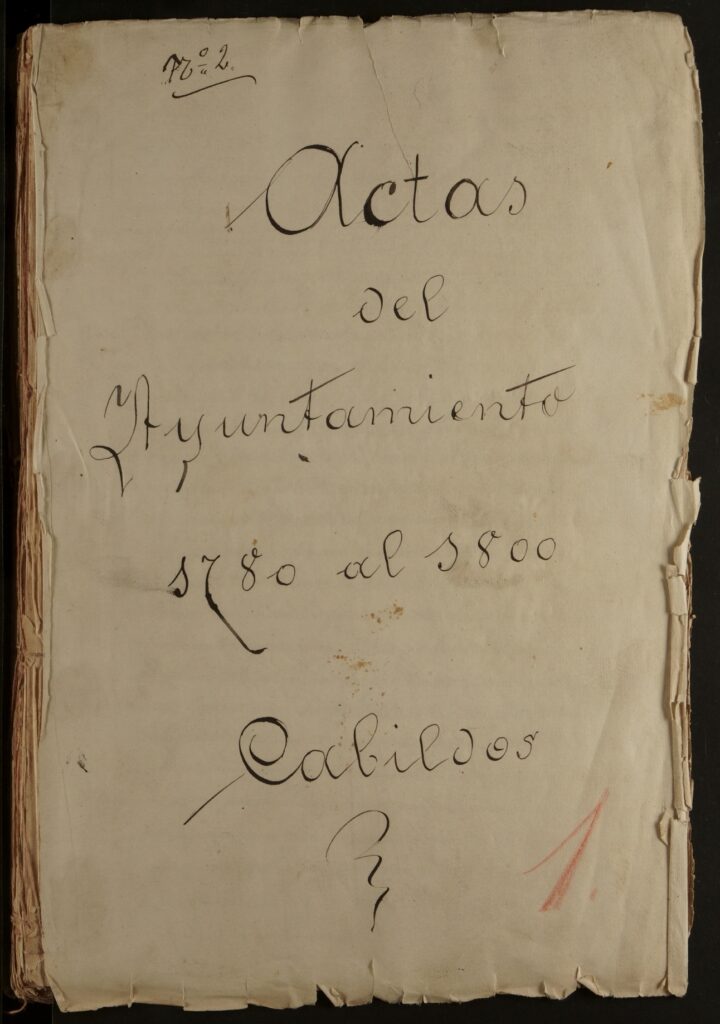 Nº 2.
Actas
del
Ayuntamiento
1780 al 1800
Cabildos
1.